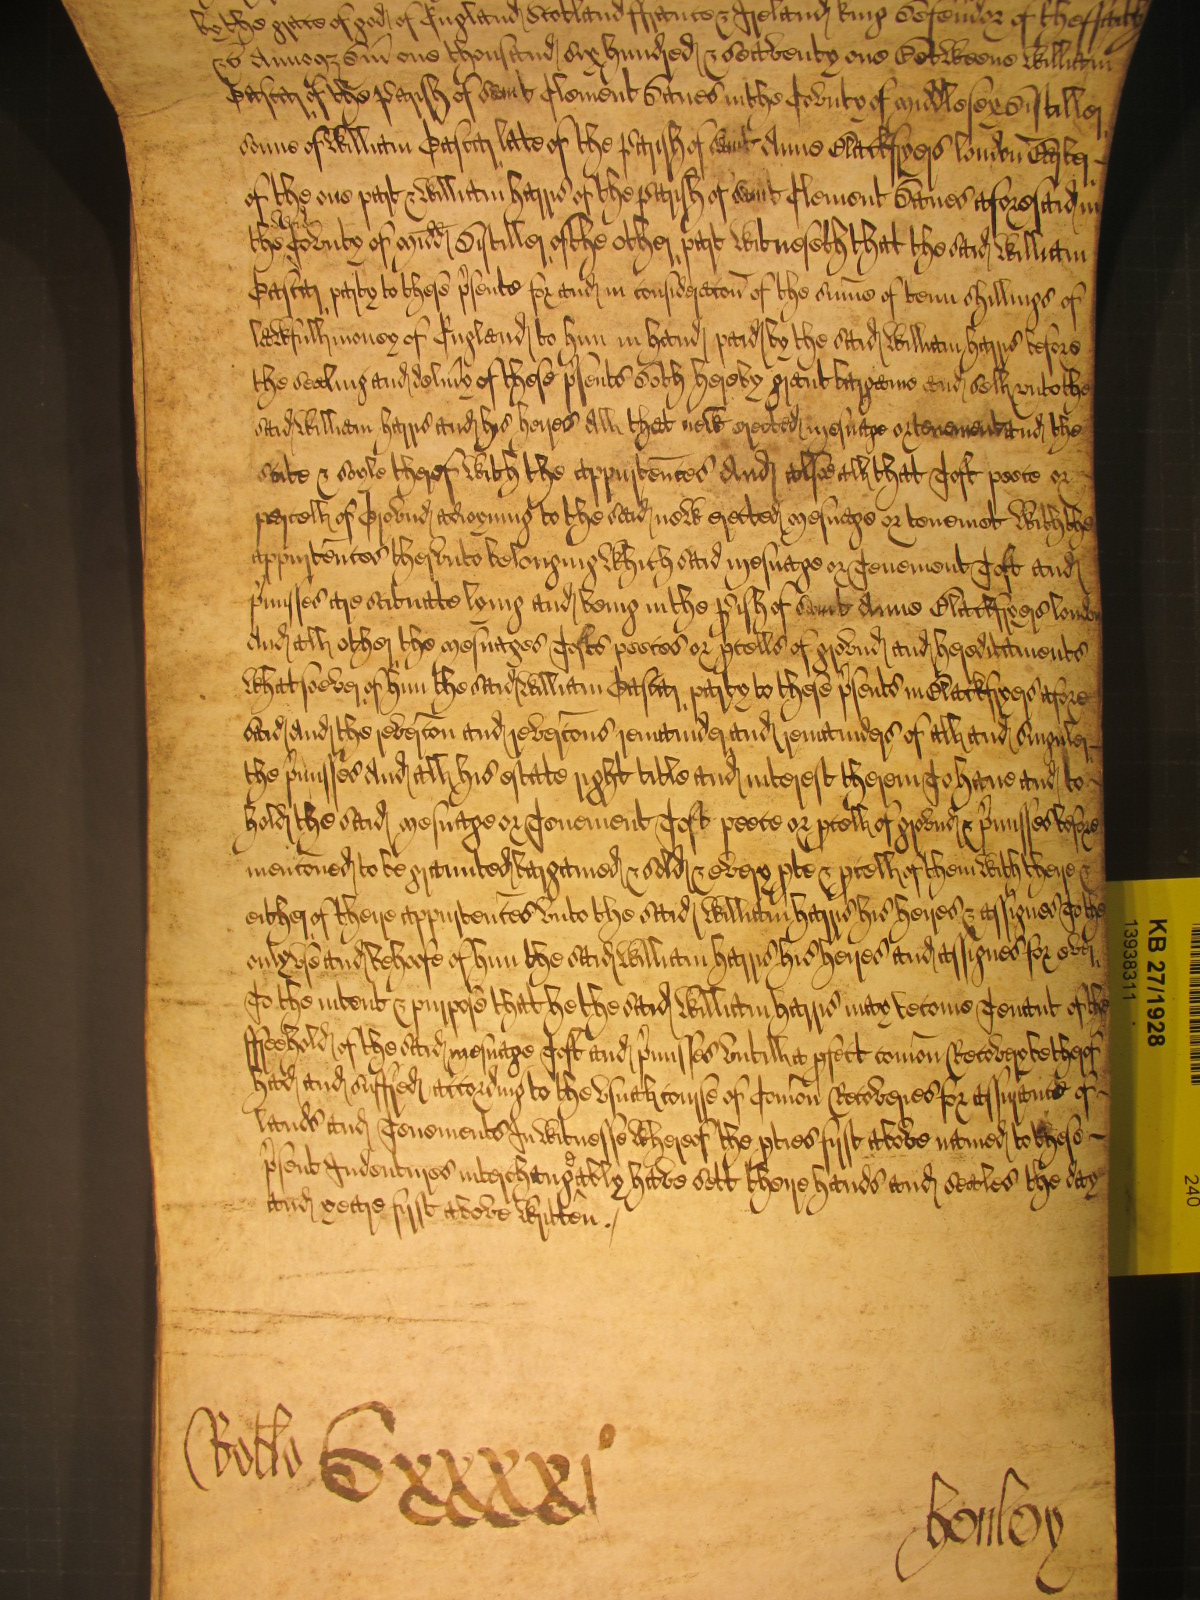 by the grace of god of England Scotland ffrance & Ireland king Defendor of the ffaith
&c Annoq3 Dm one thousand six hundred & seaventy one Betweene William
of the Parish of Saint Clement Danes in the County of Middlesex Distiller
sonne of William late of the Parish of Saint Anne Blackfryers london
of the one part & William Harris of the Parish of Saint Clement Danes aforesaid in
the County of Midd Distiller of the other part Witnesseth that the said William
party to these p'sents for and in consideracon of the sume of tenn shillings of
lawfull money of England to him in hand paid by the said William Harris before
the sealing and delivy of these p'sents doth hereby grant bargaine and sell unto the
said William Harris and his heires All that new erected mesuage or tenement and the
scite & soyle thereof with the appurtences And alsoe all that Toft peece or
parcell of Ground adioyning to the said new erected mesuage or tenemet with the
appurtences therunto belonging Which said mesuage or Tenement Toft and
p'misses are scituate lying and being in the pish of Saint Anne Blackfryers london
And all other the mesuages Tofts peeces or pcells of ground and hereditaments
whatsoever of him the said William party to these p'sents in Blackfryers afore
said And the revercon and revercons remainder and remainders of all and singuler
the p'misses And all his estate right title and interest therein To have and to
hold the said mesuage or Tenement Toft peece or pcell of ground & p'misses before
menconed to be graunted bargained & sold & every pte & pcell of them with there &
either of there appurtences unto the said William Harris his heires & assignes To the
only use and behoofe of him the said William Harris his heires and assignes for ever
To the intent & purpose that he the said William Harris may become Tenant of the
ffreehold of the said mesuage Toft and p'misses untill a pfect comon Recovery be therof
had and suffred according to the usuall course of Comon Recoveries for assurance of
lands and Tenements In witnesse whereof the pties first above named to these
p'sent Indentures interchangeably have sett there hands and seales the day
and yeare first above written
Rotlo Cxxxxi°
Henley
KB 27/1928
13938311
240